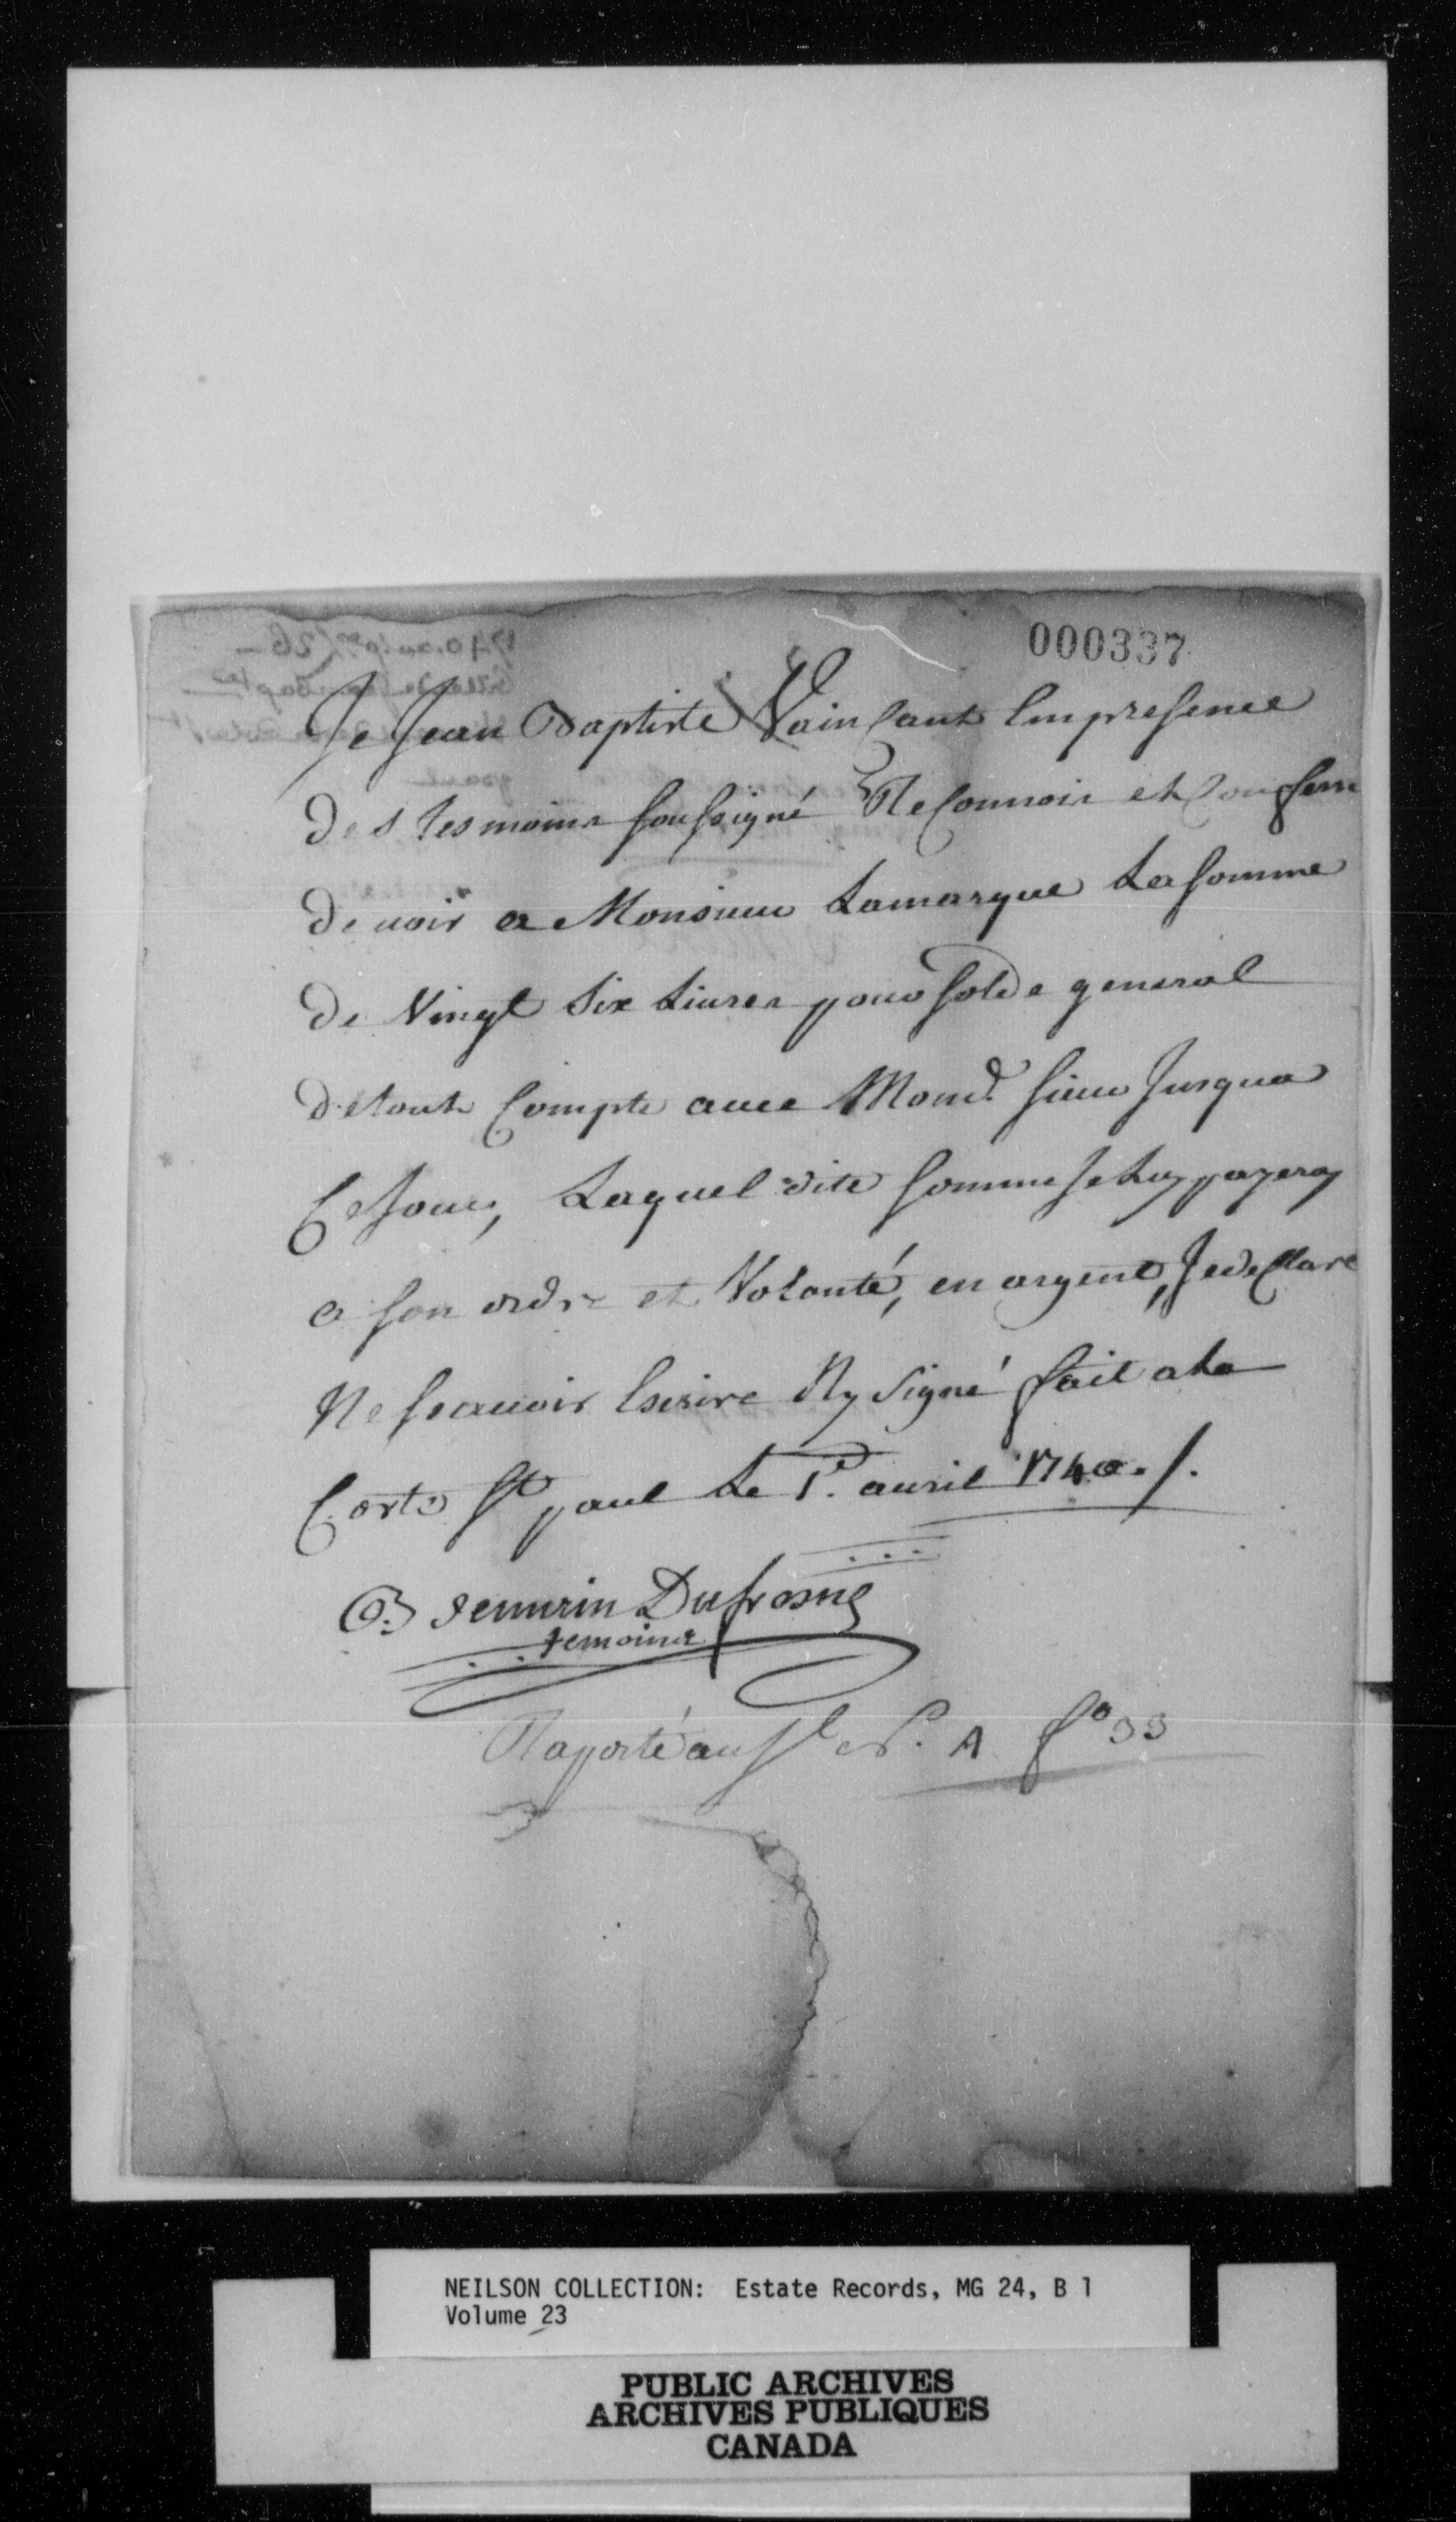 000337
Je Jean Baptiste Vainsant En presence
Des tesmoins soussigné Reconnois et Confesse
Devoir a Monsieur Lamarque La somme
De Vingt Six Livres pour solde general
de tout Compte avec Mond. sieur Jusqua
Ce Jour, Laquel dite somme Je Luy payeray
a son ordre et Volonté, en argent, Je declare
Ne scavoir Escrire Ny Signé fait a La
Corte St paul Le 1e. avril 1740./.
Dufresne
temoines
Raporté au A fo 33
NEILSON COLLECTION: Estate Records, MG 24, B 1
Volume 23
PUBLIC ARCHIVES
ARCHIVES PUBLIQUES
CANADA